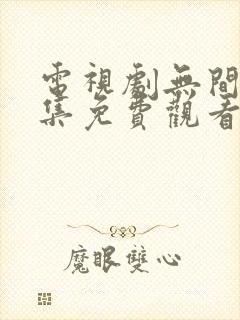 電視劇無間
集免費觀看
魔眼雙心